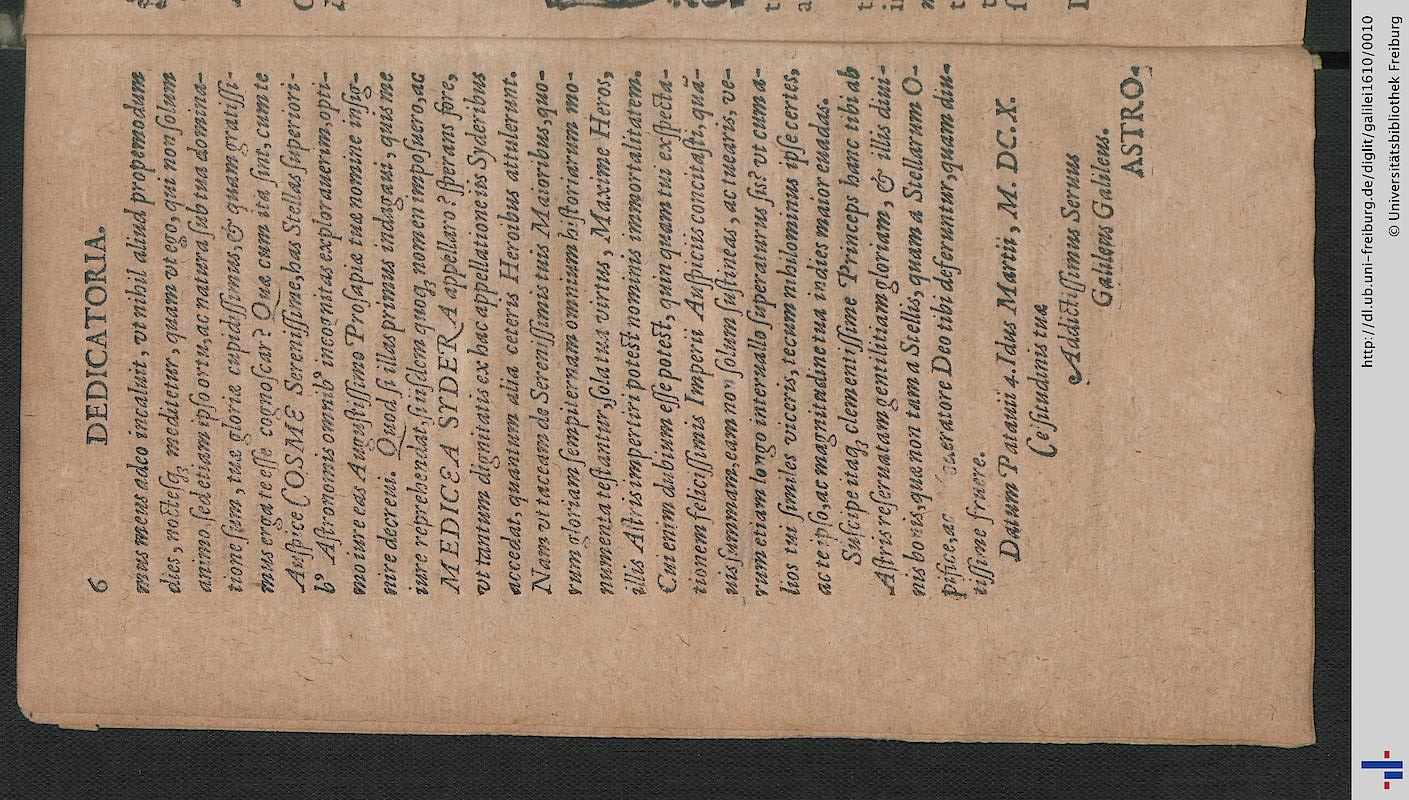 6 DEDICATORIA.
mus meus adeo incaluit, vt nihil aliud propemodum
dies, noctesq; mediteter, quam vt ego, qui non solum
animo sed etiam ipso ortu, ac natura sub tua domina-
tione sum, tuæ gloriæ cupidissimus, & quam gratissi-
mus erga te esse cognoscar? Quæ cum ita sint, cum te
Auspice COSME Serenissime, has Stellas superiori-
bꝰ Astronomis omnibꝰ incognitas explorauerim, opti-
mo iure eas Augustissimo Prosapiæ tuæ nomine insig-
nire decreui. Quod si illas primus indagaui, quis me
iure reprehendat, si iisdem quoq; nomen imposuero, ac
MEDICEA SYDERA appellaro? sperans fore,
vt tantum dignitatis ex hac appellatione iis Syderibus
accedat, quantum alia ceteris Heroibus attulerunt.
Nam vt taceam de Serenissimis tuis Maioribus, quo-
rum gloriam sempiternam omnium historiarum mo-
numenta testantur, sola tua virtus, Maxime Heros,
illis Astris impertiri potest nominis immortalitatem.
Cui enim dubium esse potest, quin quam tui exspecta-
tionem felicissimis Imperii Auspiciis concitasti, quā-
uis summam, eam non solum sustineas, ac tuearis, ve-
rum etiam longo interuallo superaturus sis? vt cum a-
lios tui similes viceris, tecum nihilominus ipse certes,
ac te ipso, ac magnitudine tua indies maior euadas.
Suscipe itaq; clementissime Princeps hanc tibi ab
Astris reseruatam gentilitiam gloriam, & illis diui-
nis bonis, quæ non tam a Stellis, quam a Stellarum O-
pifice, ac Deo tibi deferuntur, quam diu-
tissime fruere.
Datum Patauii 4. Idus Martii, M. DC. X.
Celsitudinis tuæ
Addictissimus Seruus
Galileus Galileus.
ASTRO.
http://dl.ub.uni-freiburg.de/diglit/galilei1610/0010
© Universitätsbibliothek Freiburg